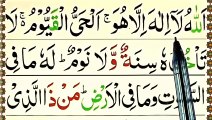 اَللّٰهُ لَاۤ اِلٰهَ اِلَّا هُوَ ۚ اَلْحَیُّ الْقَیُّوْمُ ۚ۬ لَا
تَاْخُذُهٗ سِنَةٌ وَّلَا نَوْمٌ ؕ لَهٗ مَا فِی
السَّمٰوٰتِ وَمَا فِی الْاَرْضِ ؕ مَنْ ذَا الَّذِیْ